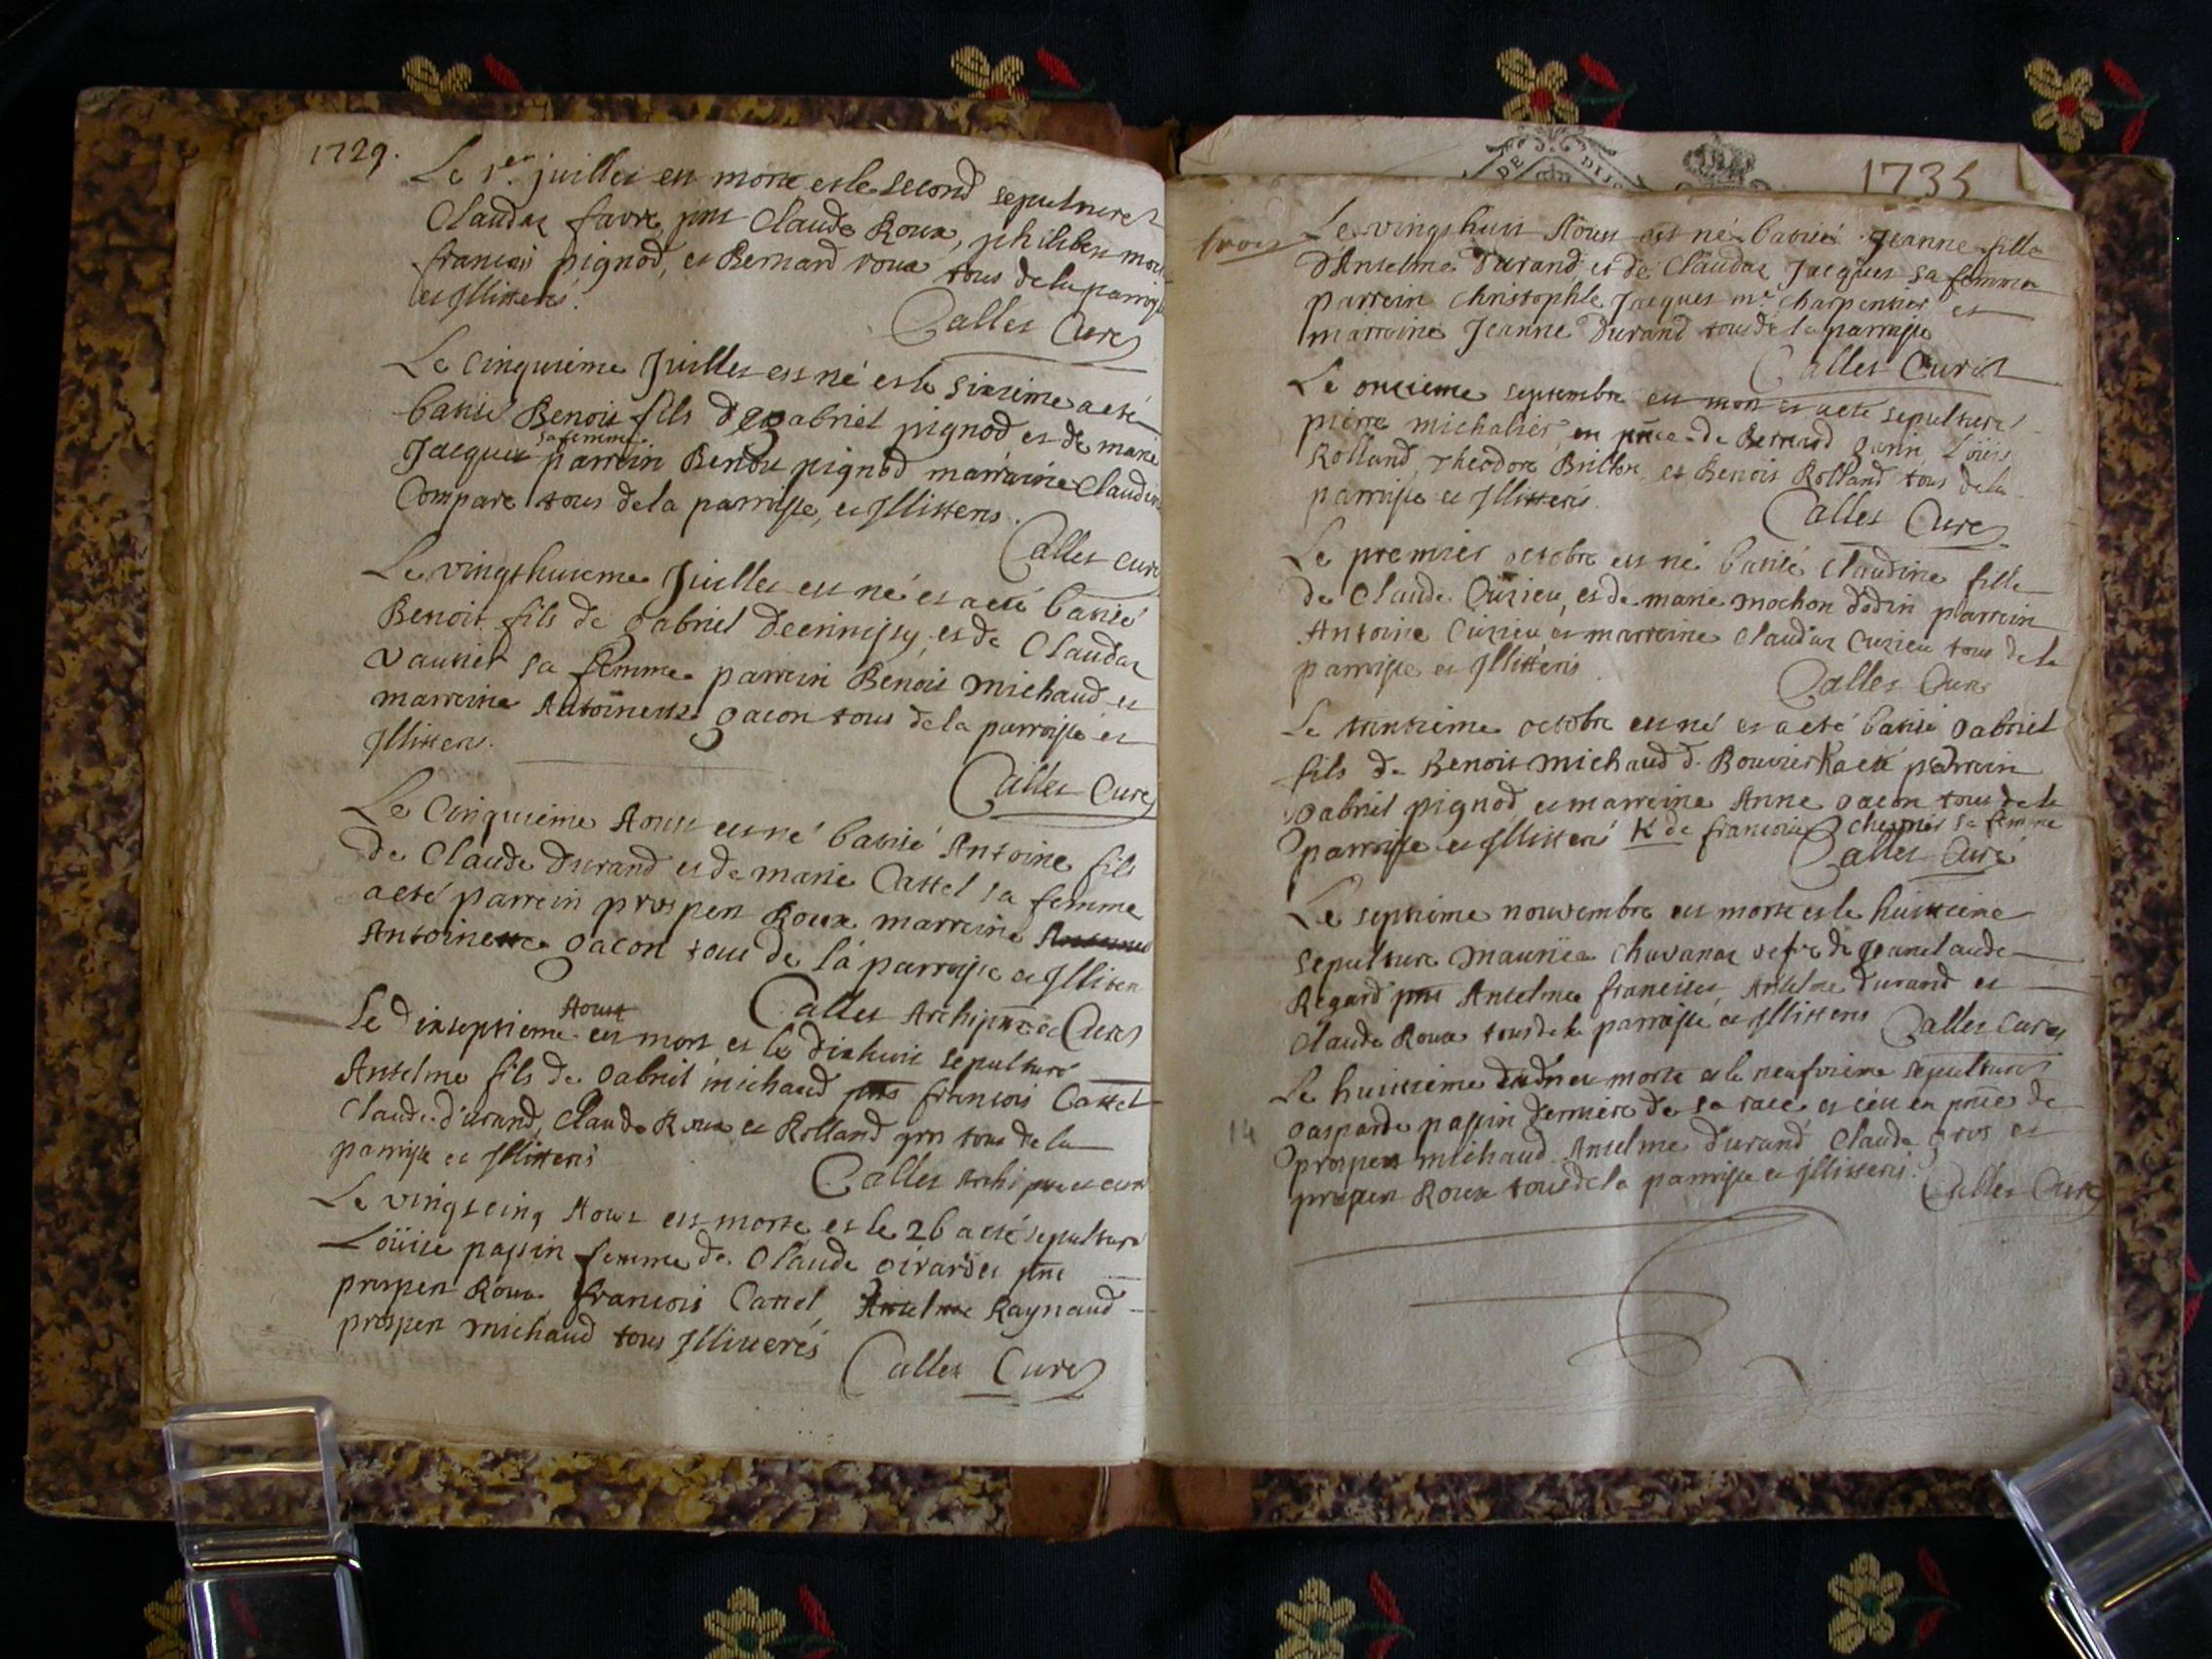 1729.
Le 1er juillet est morte et le second sepulturée
Claudaz favre, pnt Claude Roux, philibert
francois pignod, et Bernard roux tous de la parroisse
et Illitterés.
Callet Curé
Le Cinquieme Juillet est né et le sixieme a eté
batisé Benoit fils de gabriel pignod et de marie
Jacques sa femme parrein Benoit pignod marraine Claudine
Compare tous de la parroisse, et Illitterés.
Callet curé
Le vingthuieme Juillet est né et a eté batisé
Benoit fils de gabriel et de Claudaz
vautier sa femme parrein Benoit michaud et
marreine Antoinette gacon tous de la parroisse et
Illitterés.
Callet Curé
Le Cinquieme Aoust est né batisé Antoine fils
de Claude Durand et de marie Cattel sa femme
a eté parrein prosper Roux marreine
Antoinette gacon tous de la parroisse et Illiter
Callet Archiprêtre Curé
Le dixseptieme Aoust est mort et le dixhuit sepulturé
Anselme fils de gabriel michaud pnts francois Cattel
Claude durand, Claude Roux et Rolland gros tous de la
parroisse et Illitterés
Callet Archiprêtre et curé
Le vingtcinq Aoust est morte et le 26 a eté sepulturé
Loüise passin femme de Claude girardet pnt
prosper Roux francois Cattel, Anselme Raynaud
prosper michaud tous Illitterés
Callet Curé
DE DIJO
1735
trois
Le vingthuit Aoust est né batisé jeanne fille
d'Anselme Durand et de Claudaz Jacques sa femme
parrein Christophle Jacques me Charpentier et
marraine Jeanne Durand tous de la parroisse
Callet Curé
Le onzieme septembre est mort et a eté sepulturé
pierre michalier en pnce de Bernard garin, Loüis
Rolland, Theodore Brillon, et Benoit Rolland tous de la
parroisse et Illitterés
Callet Curé
Le premier octobre est né batisé Claudine fille
de Claude Cuzieu, et de marie mochon dodin parrein
Antoine Cuzieu et marreine Claudaz Cuzieu tous de la
parroisse et Illitterés
Callet Curé
Le trentieme octobre est né et a eté batisé gabriel
fils de Benoit michaud d. Bouvier K a eté parrein
gabriel pignod et marreine Anne gacon tous de la
parroisse et Illitteré K de francoise sa femme
Callet Curé
Le septieme nouvembre est morte et le huittieme
sepulture Mauriza Chavanaz vefve de jeanclaude
Regard pnts Anselme francillet, Anselme durand et
Claude Roux tous de la parroisse et Illitterés Callet Curé
Le huittieme dudit est morte et le neufvieme sepulturé
gasparde passin derniere de sa race et en pnce de
14
prosper michaud Anselme durand Claude gros et
prosper Roux tous de la parroisse et Illitterés.
Callet Curé